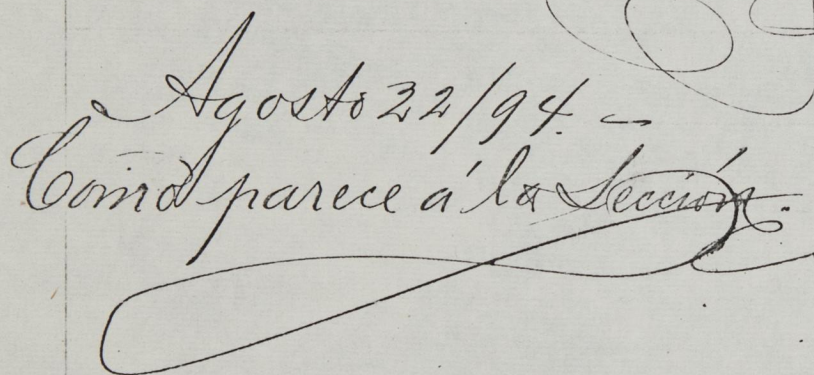 Agosto 22/94. –
Como parece á la Sección.